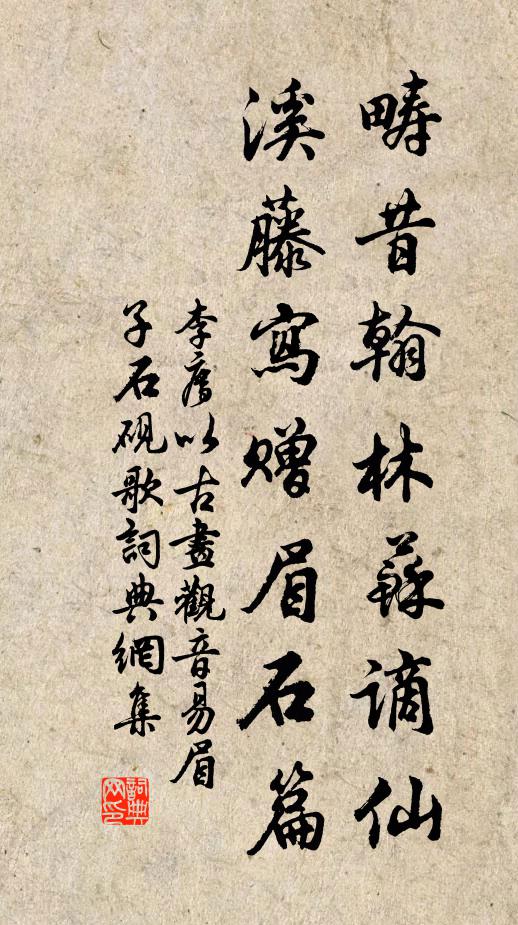 疇昔翰林蘇謫仙
溪藤寫贈眉石篇
李以古畫觀音易眉
子石硯歌詞典網集
詞典
网印